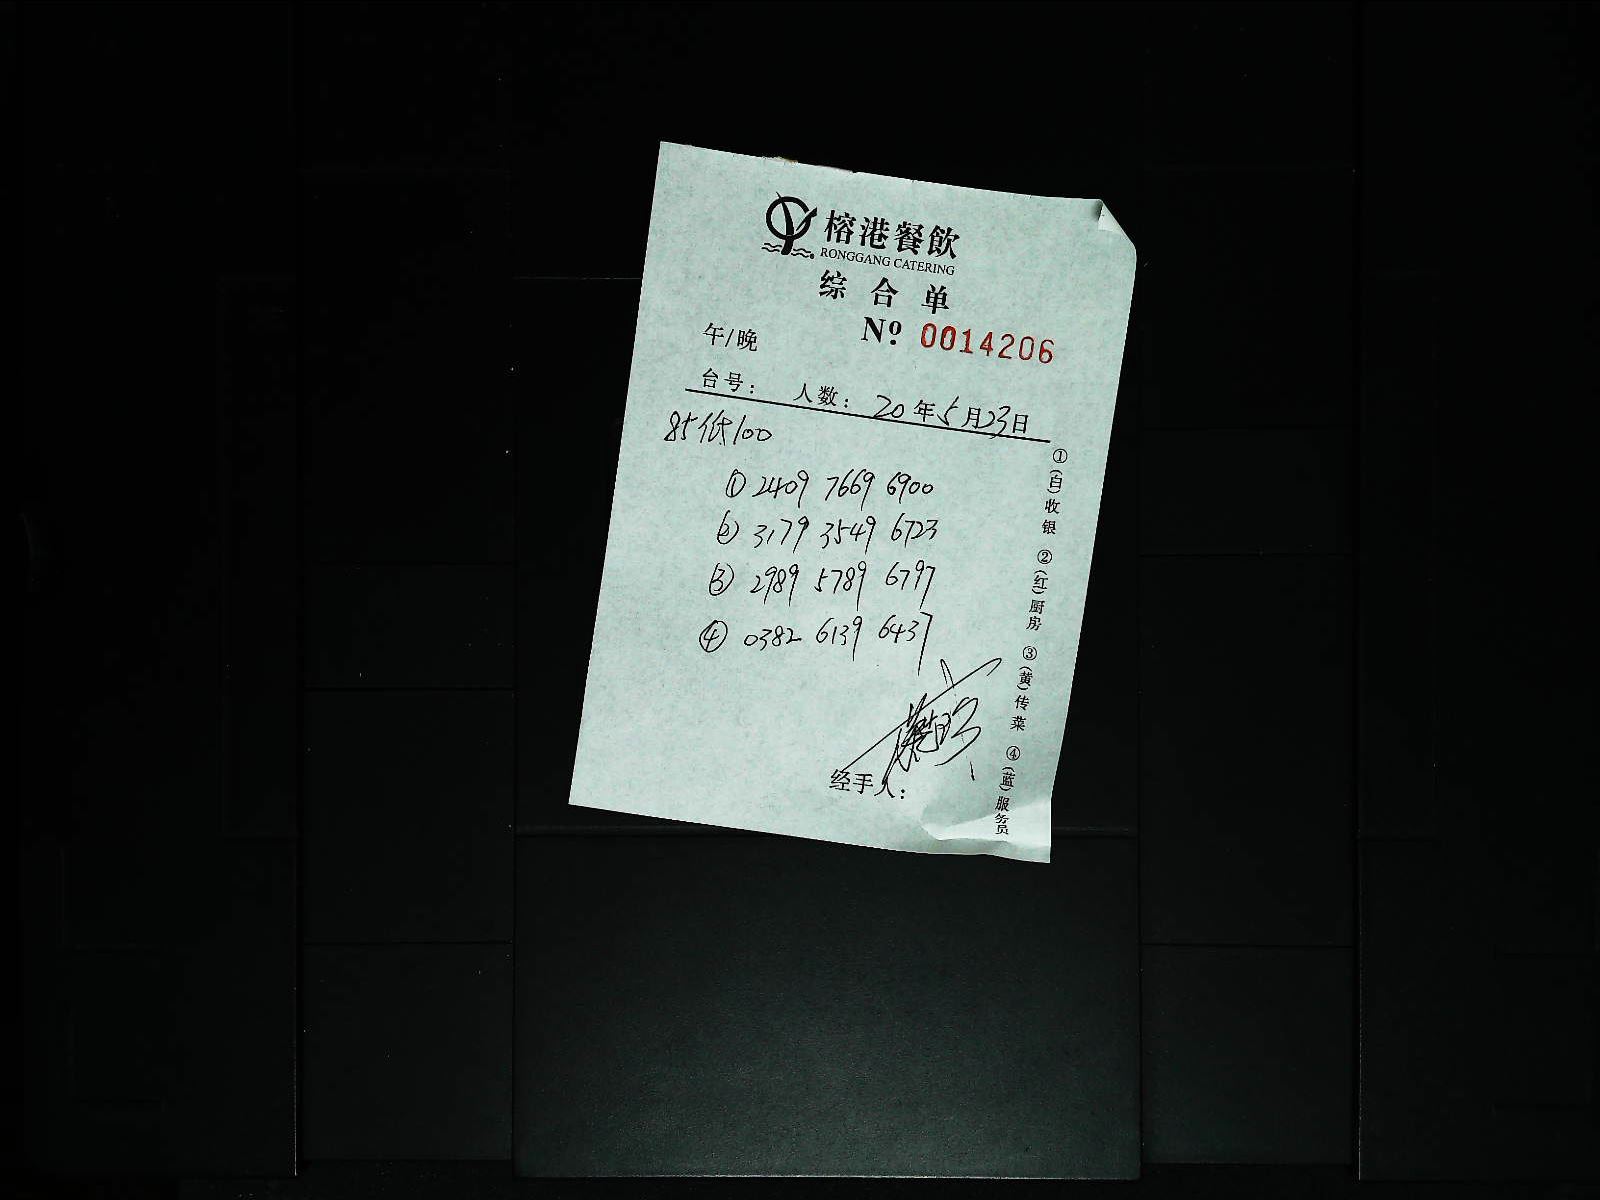 榕港餐飲
RONGGANG CATERING
综合单
午/晚 Nº 0014206
台号： 人数： 20年5月23日
85低100
① 2409 7669 6900
② 3179 3549 6723
③ 2989 5789 6797
④ 0382 6139 6437
经手人：
①(白)收银 ②(红)厨房 ③(黄)传菜 ④(蓝)服务员